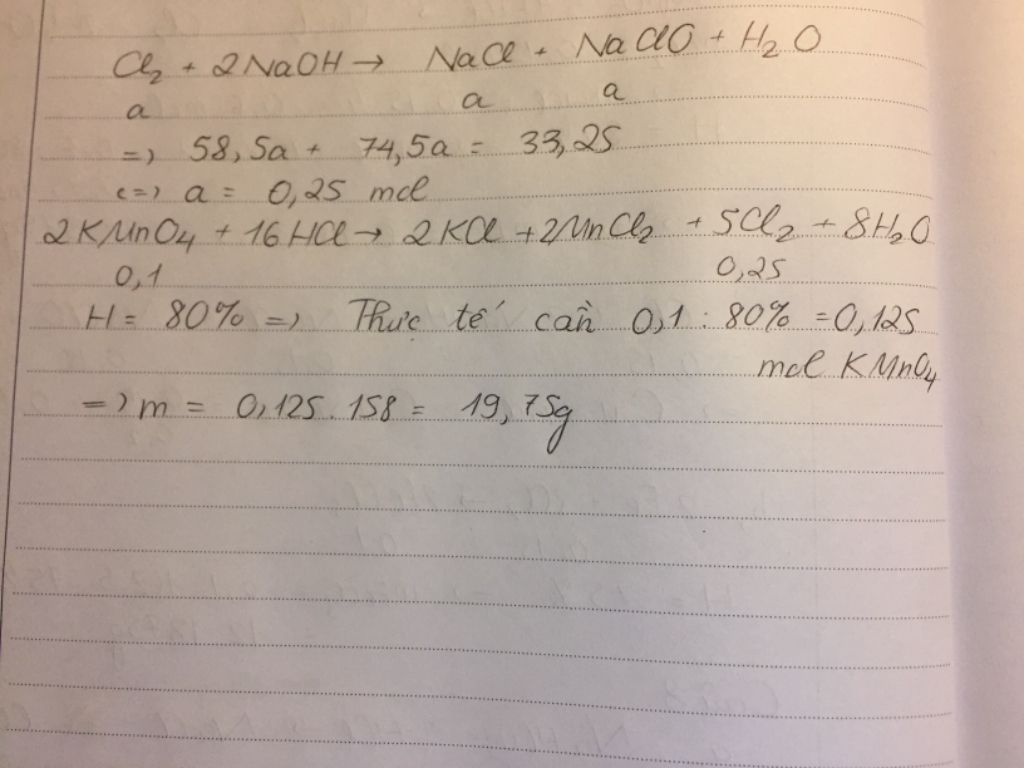 Cl₂ + 2NaOH → NaCl + NaClO + H₂O
a a a
=) 58,5a + 74,5a = 33,25
(=) a = 0,25 mol
2KMnO₄ + 16HCl → 2KCl + 2MnCl₂ + 5Cl₂ + 8H₂O
0,1 0,25
H = 80% =) Thực tế cần 0,1 : 80% = 0,125
mol KMnO₄
=) m = 0,125 . 158 = 19,75g